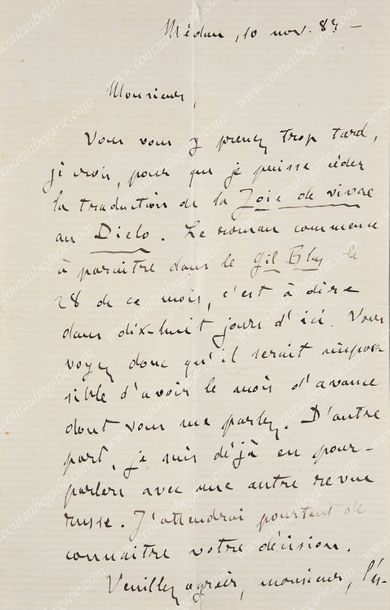 Médan, 10 nov. 83 -
Monsieur,
Vous vous y prenez trop tard,
je crois, pour que je puisse céder
la traduction de la Joie de vivre
au Dielo. Le roman commence
à paraître dans le Gil Blas le
28 de ce mois, c'est à dire
dans dix-huit jours d'ici. Vous
voyez donc qu'il serait impos-
sible d'avoir le mois d'avance
dont vous me parlez. D'autre
part, je suis déjà en pour-
parlers avec une autre revue
russe. J'attendrai pourtant de
connaître votre décision.
Veuillez agréer, monsieur, l'es-
www.coutaubegarie.com